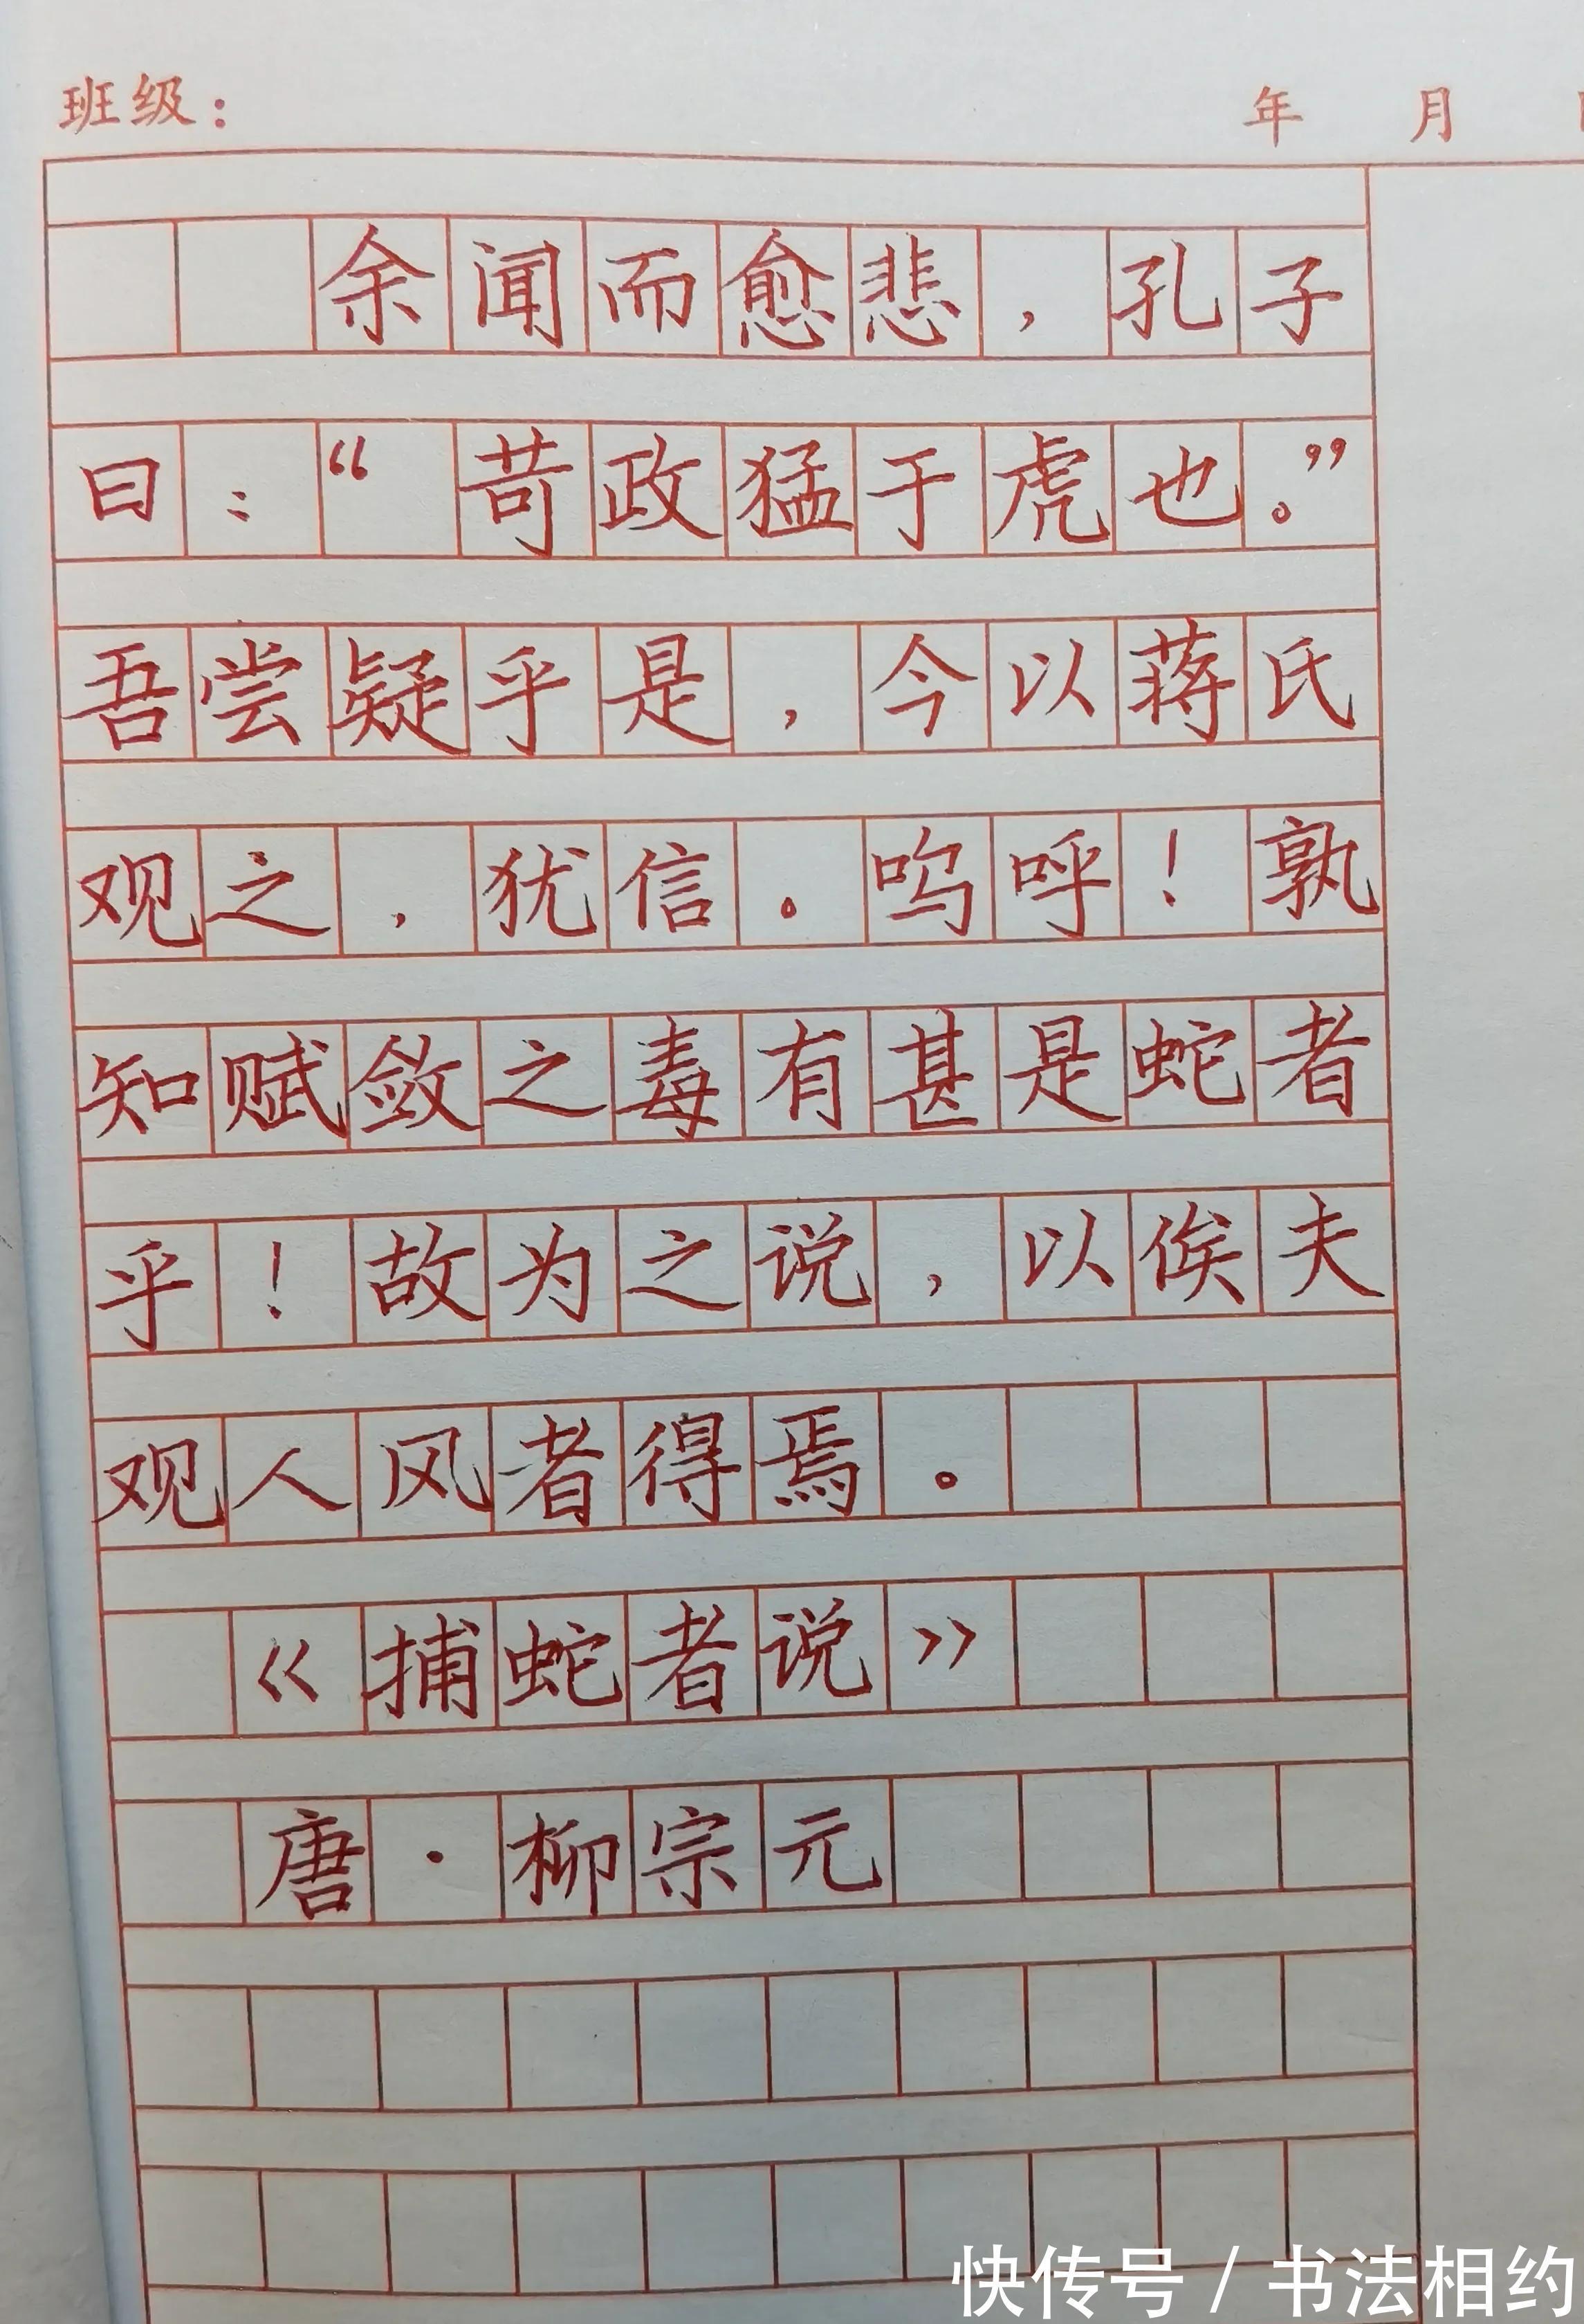 班级： 年 月
余闻而愈悲，孔子
曰：“苛政猛于虎也。”
吾尝疑乎是，今以蒋氏
观之，犹信。呜呼！孰
知赋敛之毒有甚是蛇者
乎！故为之说，以俟夫
观人风者得焉。
《捕蛇者说》
唐·柳宗元
快传号/书法相约